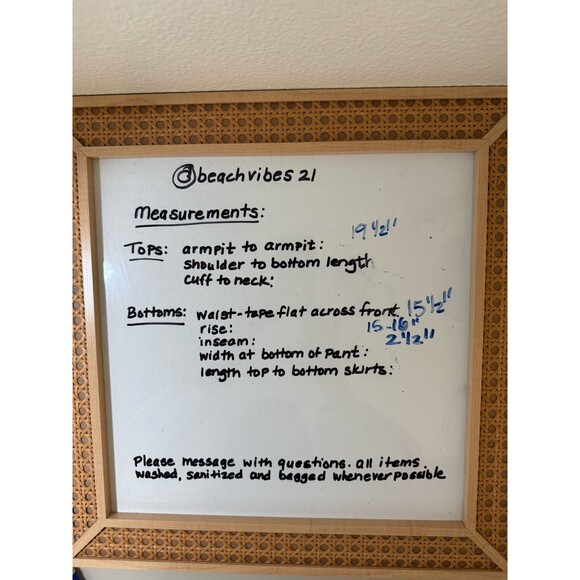 @beachvibes21
Measurements:
Tops: armpit to armpit: 19 1/2"
shoulder to bottom length
cuff to neck:
Bottoms: waist-tape flat across front 15 1/2"
rise: 15-16"
inseam: 2 1/2"
width at bottom of pant:
length top to bottom skirts:
Please message with questions. all items
washed, sanitized and bagged whenever possible